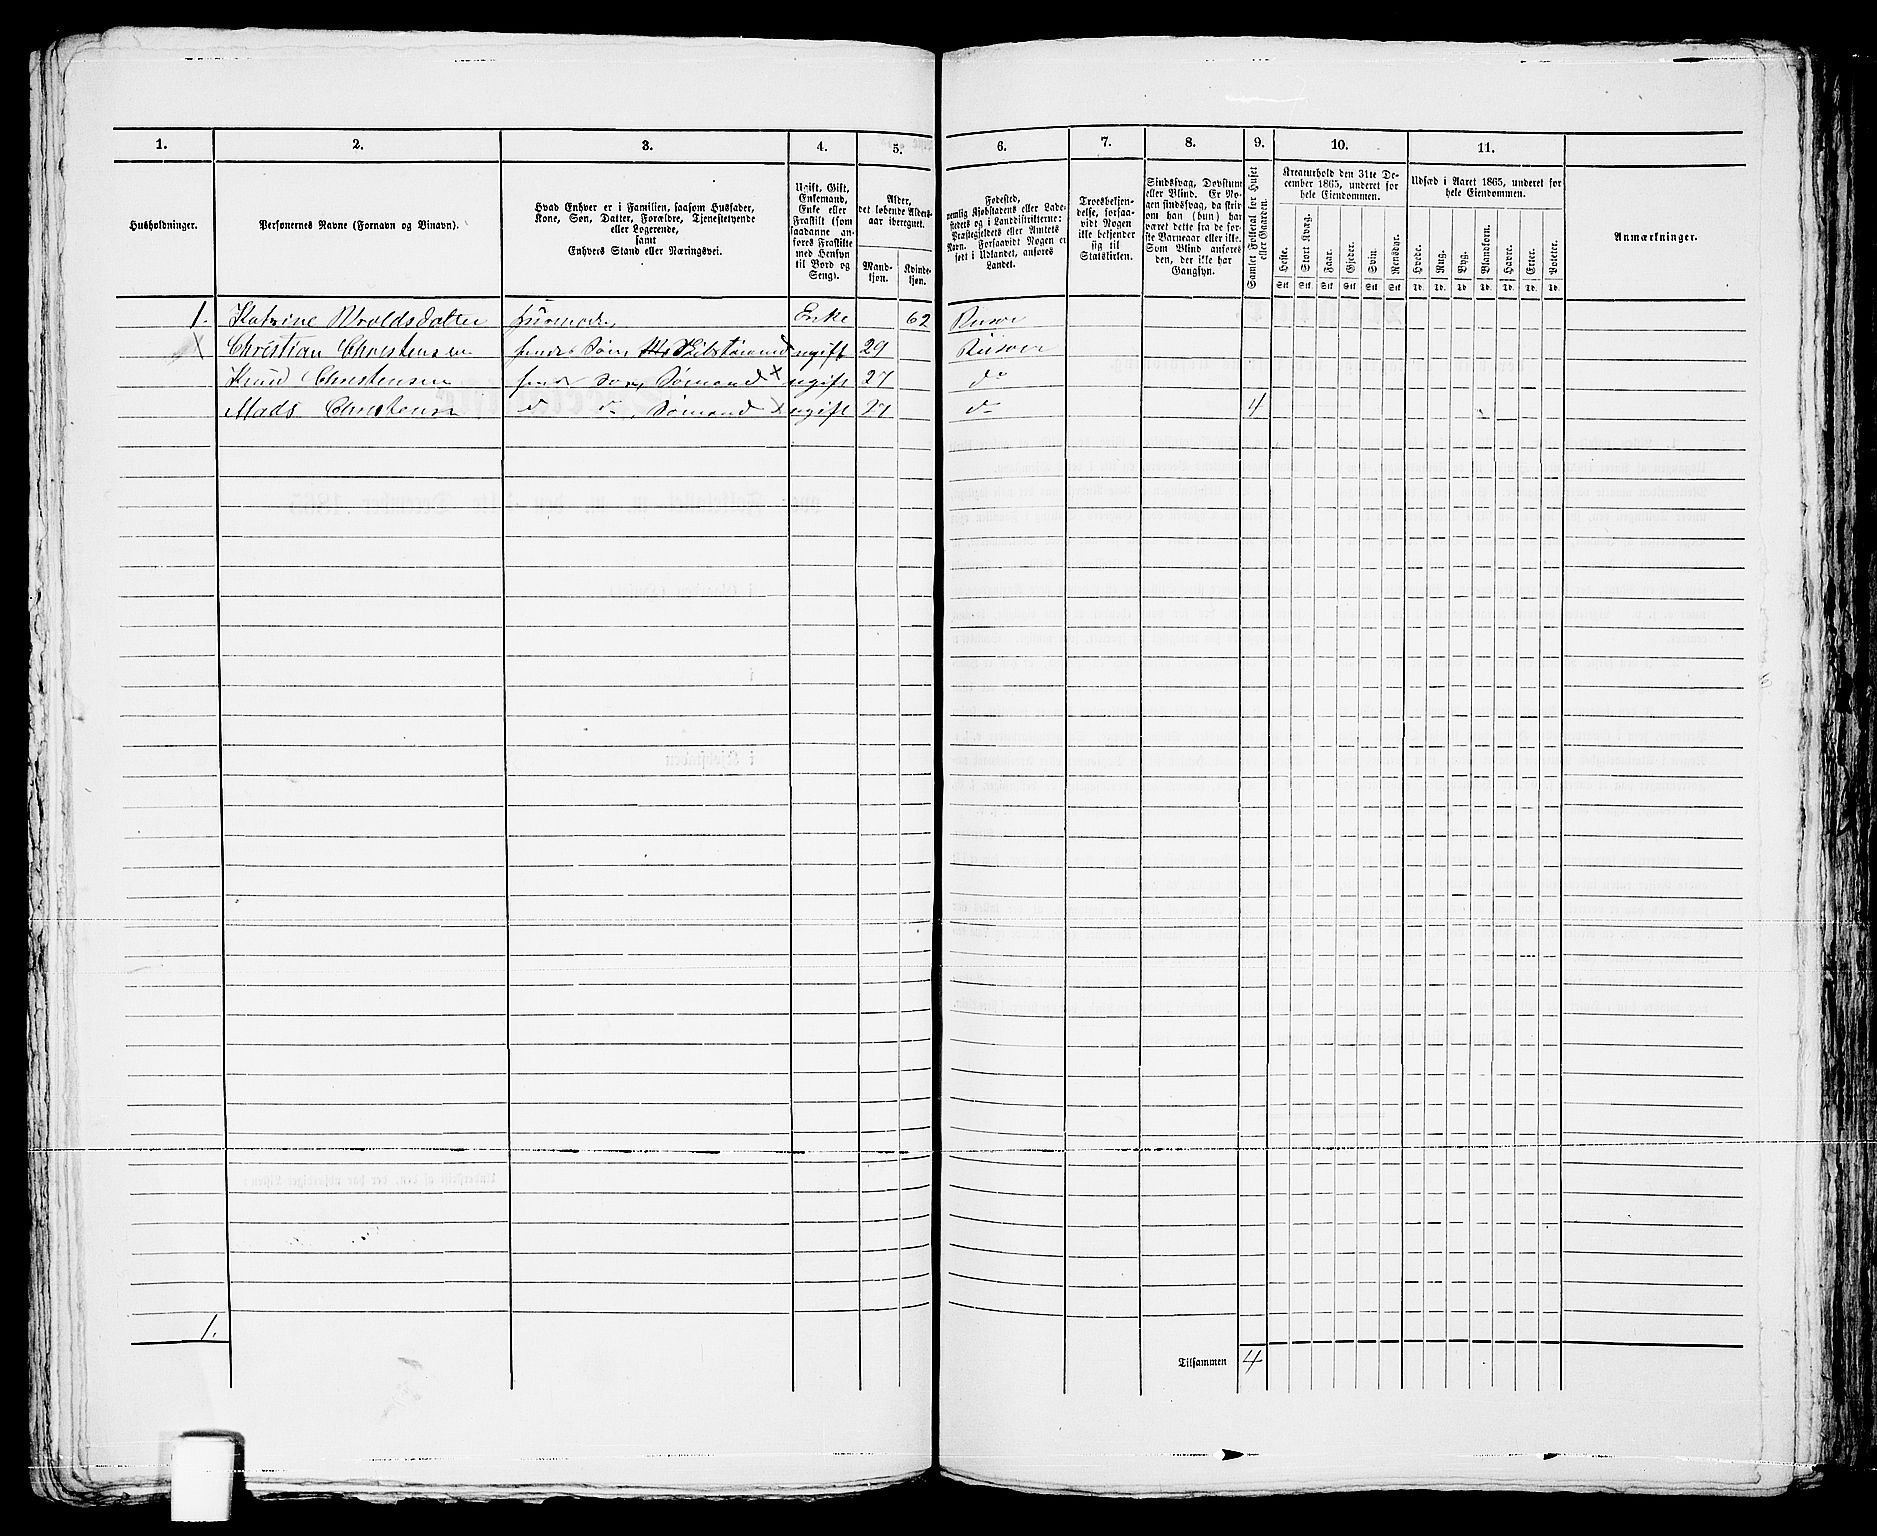 1.
2.
3.
4.
5.
6.
7.
8.
9.
10.
11.
Husholdninger.
Personernes Navne (Fornavn og Binavn).
Hvad Enhver er i Familien, saasom Husfader,
Kone, Søn, Datter, Forældre, Tjenestetyende
eller Logerende,
samt
Enhvers Stand eller Næringsvei.
Ugift, Gift,
Enkemand,
Enke eller
Fraskilt (som
saadanne an-
føres Fraskilte
med Hensyn
til Bord og
Seng).
Alder,
det løbende Alders-
aar iberegnet.
Mand-
kjøn.
Kvinde-
kjøn.
Fødested,
nemlig Kjøbstadens eller Lade-
stedets og i Landdistrikterne:
Præstegjeldets eller Amtets
Navn. Forsaavidt Nogen er
født i Udlandet, anføres
Landet.
Troesbekjen-
delse, forsaa-
vidt Nogen
ikke bekjender
sig til
Statskirken.
Sindssvag, Døvstum
eller Blind. Er No-
gen sindssvag, da skriv
om han (hun) har
været dette fra de før-
ste Barneaar eller ikke.
Som Blind anføres
den, der ikke har
Gangsyn.
Samlet Folketal for Huset
eller Gaarden.
Kreaturhold den 31te De-
cember 1865, underet for
hele Eiendommen.
Heste.
Stort Kvæg.
Faar.
Gjeder.
Svin.
Rensdyr.
Stk Stk Stk Stk Stk Stk
Udsæd i Aaret 1865, underet for
hele Eiendommen.
Hvede.
Rug.
Byg.
Blandkorn.
Havre.
Erter.
Poteter.
Td. Td. Td. Td. Td. Td. Td.
Anmærkninger.
1. Katrine Roaldsdatter Huusmoder, Enke 62 Risøer
Christian Christensen hendes Søn, Skibstømmermd ugift 29 Risøer
Knud Christensen hends Søn, Sømand x ugift 27 do
Mads Christensen d d, Sømand x ugift 27 do 4
1.
Tilsammen 4